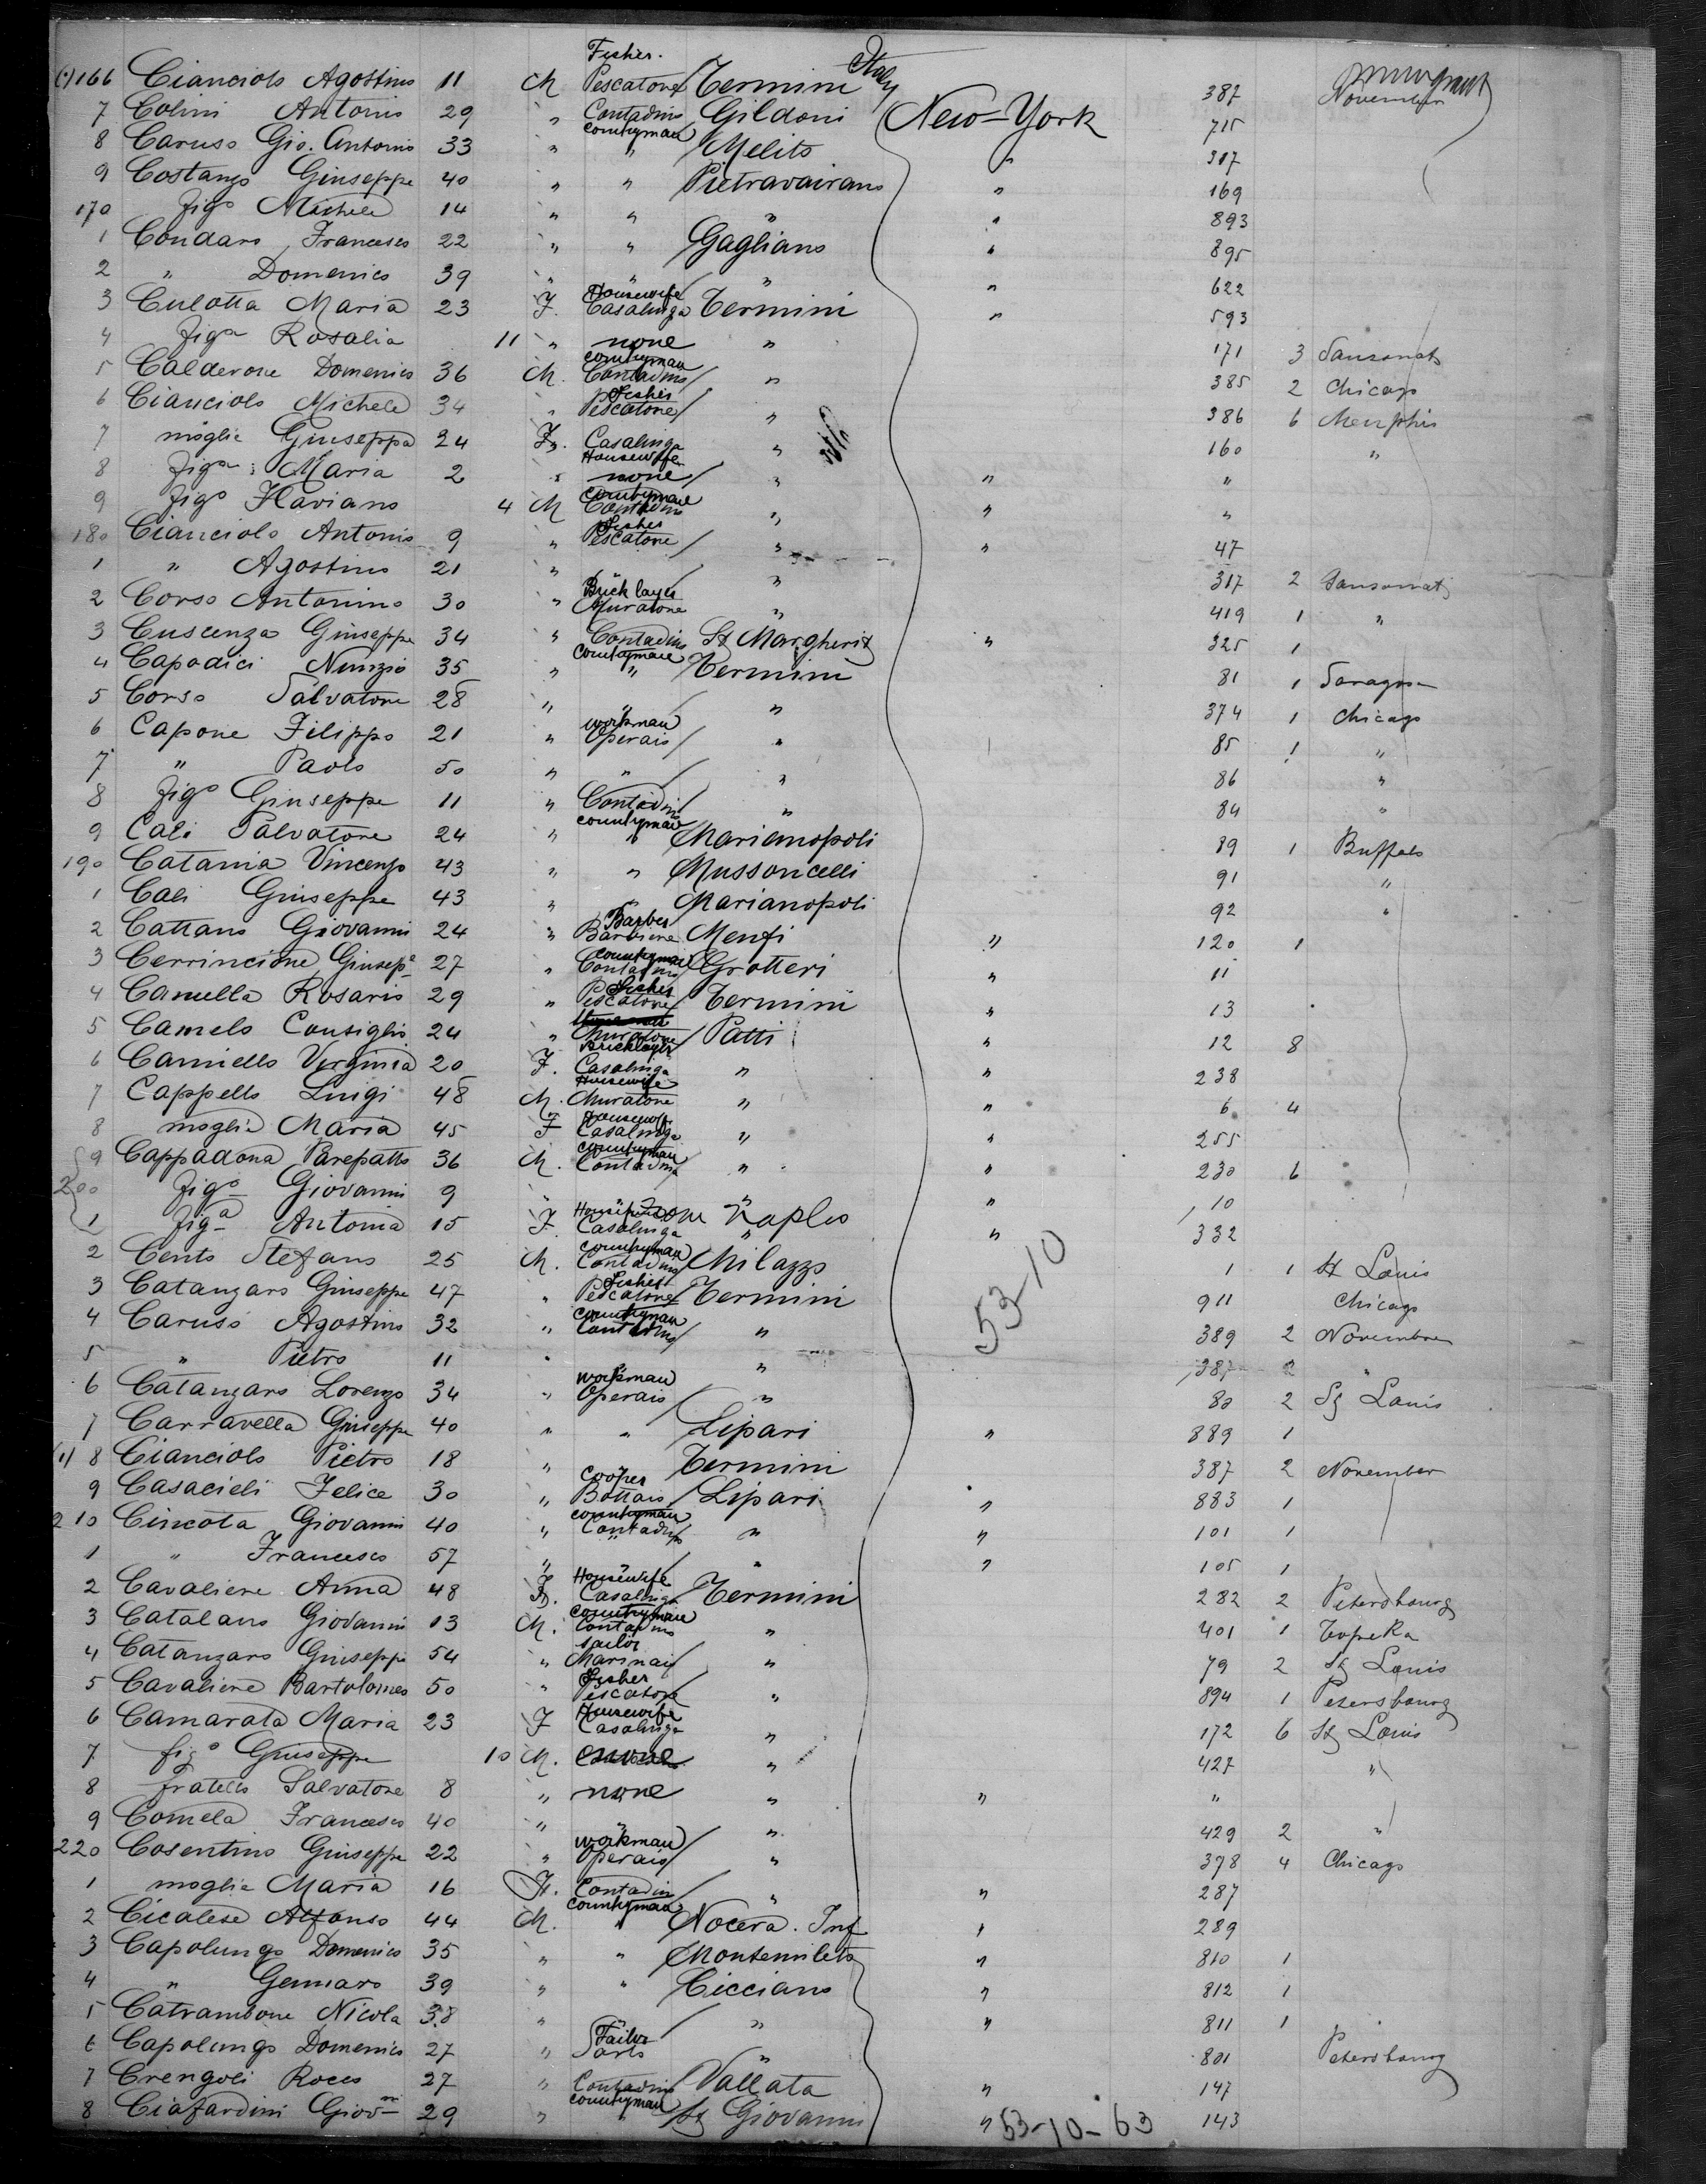 Italy
Fisher.
166 Cianciolo Agostino 11 M Pescatore Termini 387 November
7 Colini Antonio 29 " Contadino countryman Gildoni New-York 715
8 Caruso Gio. Antonio 33 " " Melito " 317
9 Costanzo Giuseppe 40 " " Pietravairano " 169
170 figo Michele 14 " " " " 893
1 Condaro Francesco 22 " " Gagliano " 895
2 " Domenico 39 " " " " 622
3 Culotta Maria 23 F. Housewife Casalinga Termini " 593
4 figa Rosalia 11 " none " 171 3 Sansonato
5 Calderone Domenico 36 M. countryman Contadino " 385 2 Chicago
6 Cianciolo Michele 34 " fisher Pescatore " 386 6 Memphis
7 moglie Giuseppa 24 F. Casalinga Housewife " 160 "
8 figa: Maria 2 " none " " "
9 figo Flaviano 4 M countryman Contadino " " "
180 Cianciolo Antonio 9 " fisher Pescatore " " 47
1 " Agostino 21 " " " 317 2 Sansonato
2 Corso Antonino 30 " Bricklayer Muratore " 419 1 "
3 Cuscenza Giuseppe 34 " Contadino countryman St Margherita " 325 1
4 Capodici Nunzio 35 " " Termini 81 1
5 Corso Salvatore 28 " " " 374 1 Chicago
6 Capone Filippo 21 " workman Operaio " 85 1 "
7 " Paolo 50 " " " 86 "
8 figo Giuseppe 11 " Contadino countryman " 84 "
9 Cali Salvatore 24 " " Marianopoli 89 1 Buffalo
190 Catania Vincenzo 43 " " Mussoncelli 91 "
1 Cali Giuseppe 43 " " Marianopoli 92 "
2 Cattano Giovanni 24 " Barber Barbiere Menfi " 120 1
3 Cerrincione Giusepe 27 " countryman Contadino Grotteri " 11
4 Camella Rosario 29 " fisher Pescatore Termini " 13
5 Camelo Consiglio 24 " Muratore Bricklayer Patti " 12 8
6 Camiello Virginia 20 F. Casalinga Housewife " " 238
7 Cappello Luigi 48 M. Muratore " " 6 4
8 moglie Maria 45 F Housewife Casalinga " " 255
9 Cappadona 36 M. countryman Contadino " " 230 6
200 figo Giovanni 9 " " " " 10
1 figa Antonia 15 F. Casalinga Naples " 332
2 Cento Stefano 25 M. countryman Contadino Milazzo 1 1 St Louis
3 Catanzaro Giuseppe 47 " fisher Pescatore Termini 911 Chicago
4 Caruso Agostino 32 " countryman Contadino " 389 2 Novembre
5 " Pietro 11 " " 387 2 "
6 Catanzaro Lorenzo 34 " workman Operaio " 80 2 St Louis
7 Carravella Giuseppe 40 " " Lipari " 889 1
8 Cianciolo Pietro 18 " Termini 387 2 November
9 Casacieli Felice 30 " Cooper Bottaio Lipari " 883 1
210 Cincota Giovanni 40 " countryman Contadino " " 101 1
1 " Francesco 57 " " " " 105 1
2 Cavaliere Anna 48 F. Housewife Casalinga Termini 282 2 Petersbourg
3 Catalano Giovanni 13 M. countryman Contadino " 401 1 Topeka
4 Catanzaro Giuseppe 54 " sailor Marinaio " 79 2 St Louis
5 Cavaliere Bartolomeo 50 " fisher Pescatore " 894 1 Petersbourg
6 Camarata Maria 23 F Housewife Casalinga " 172 6 St Louis
7 figo Giuseppe 10 M. none " 427 "
8 fratello Salvatore 8 " none " " "
9 Comela Francesco 40 " " " 429 2 "
220 Cosentino Giuseppe 22 " workman Operaio " 378 4 Chicago
1 moglie Maria 16 F. Contadin countryman " " 287
2 Cicalese Alfonso 44 M. " Nocera. Inf " 289
3 Capolungo Domenico 35 " " Montemileto " 810 1
4 " Gennaro 39 " " Cicciano " 812 1
5 Catrambone Nicola 38 " " " 811 1
6 Capolungo Domenico 27 " Tailor Sarto " 801 Petersbourg
7 Crengoli Rocco 27 " Contadino countryman Vallata " 147
8 Ciafardini Giovni 29 " St Giovanni " 143
53-10
53-10-63